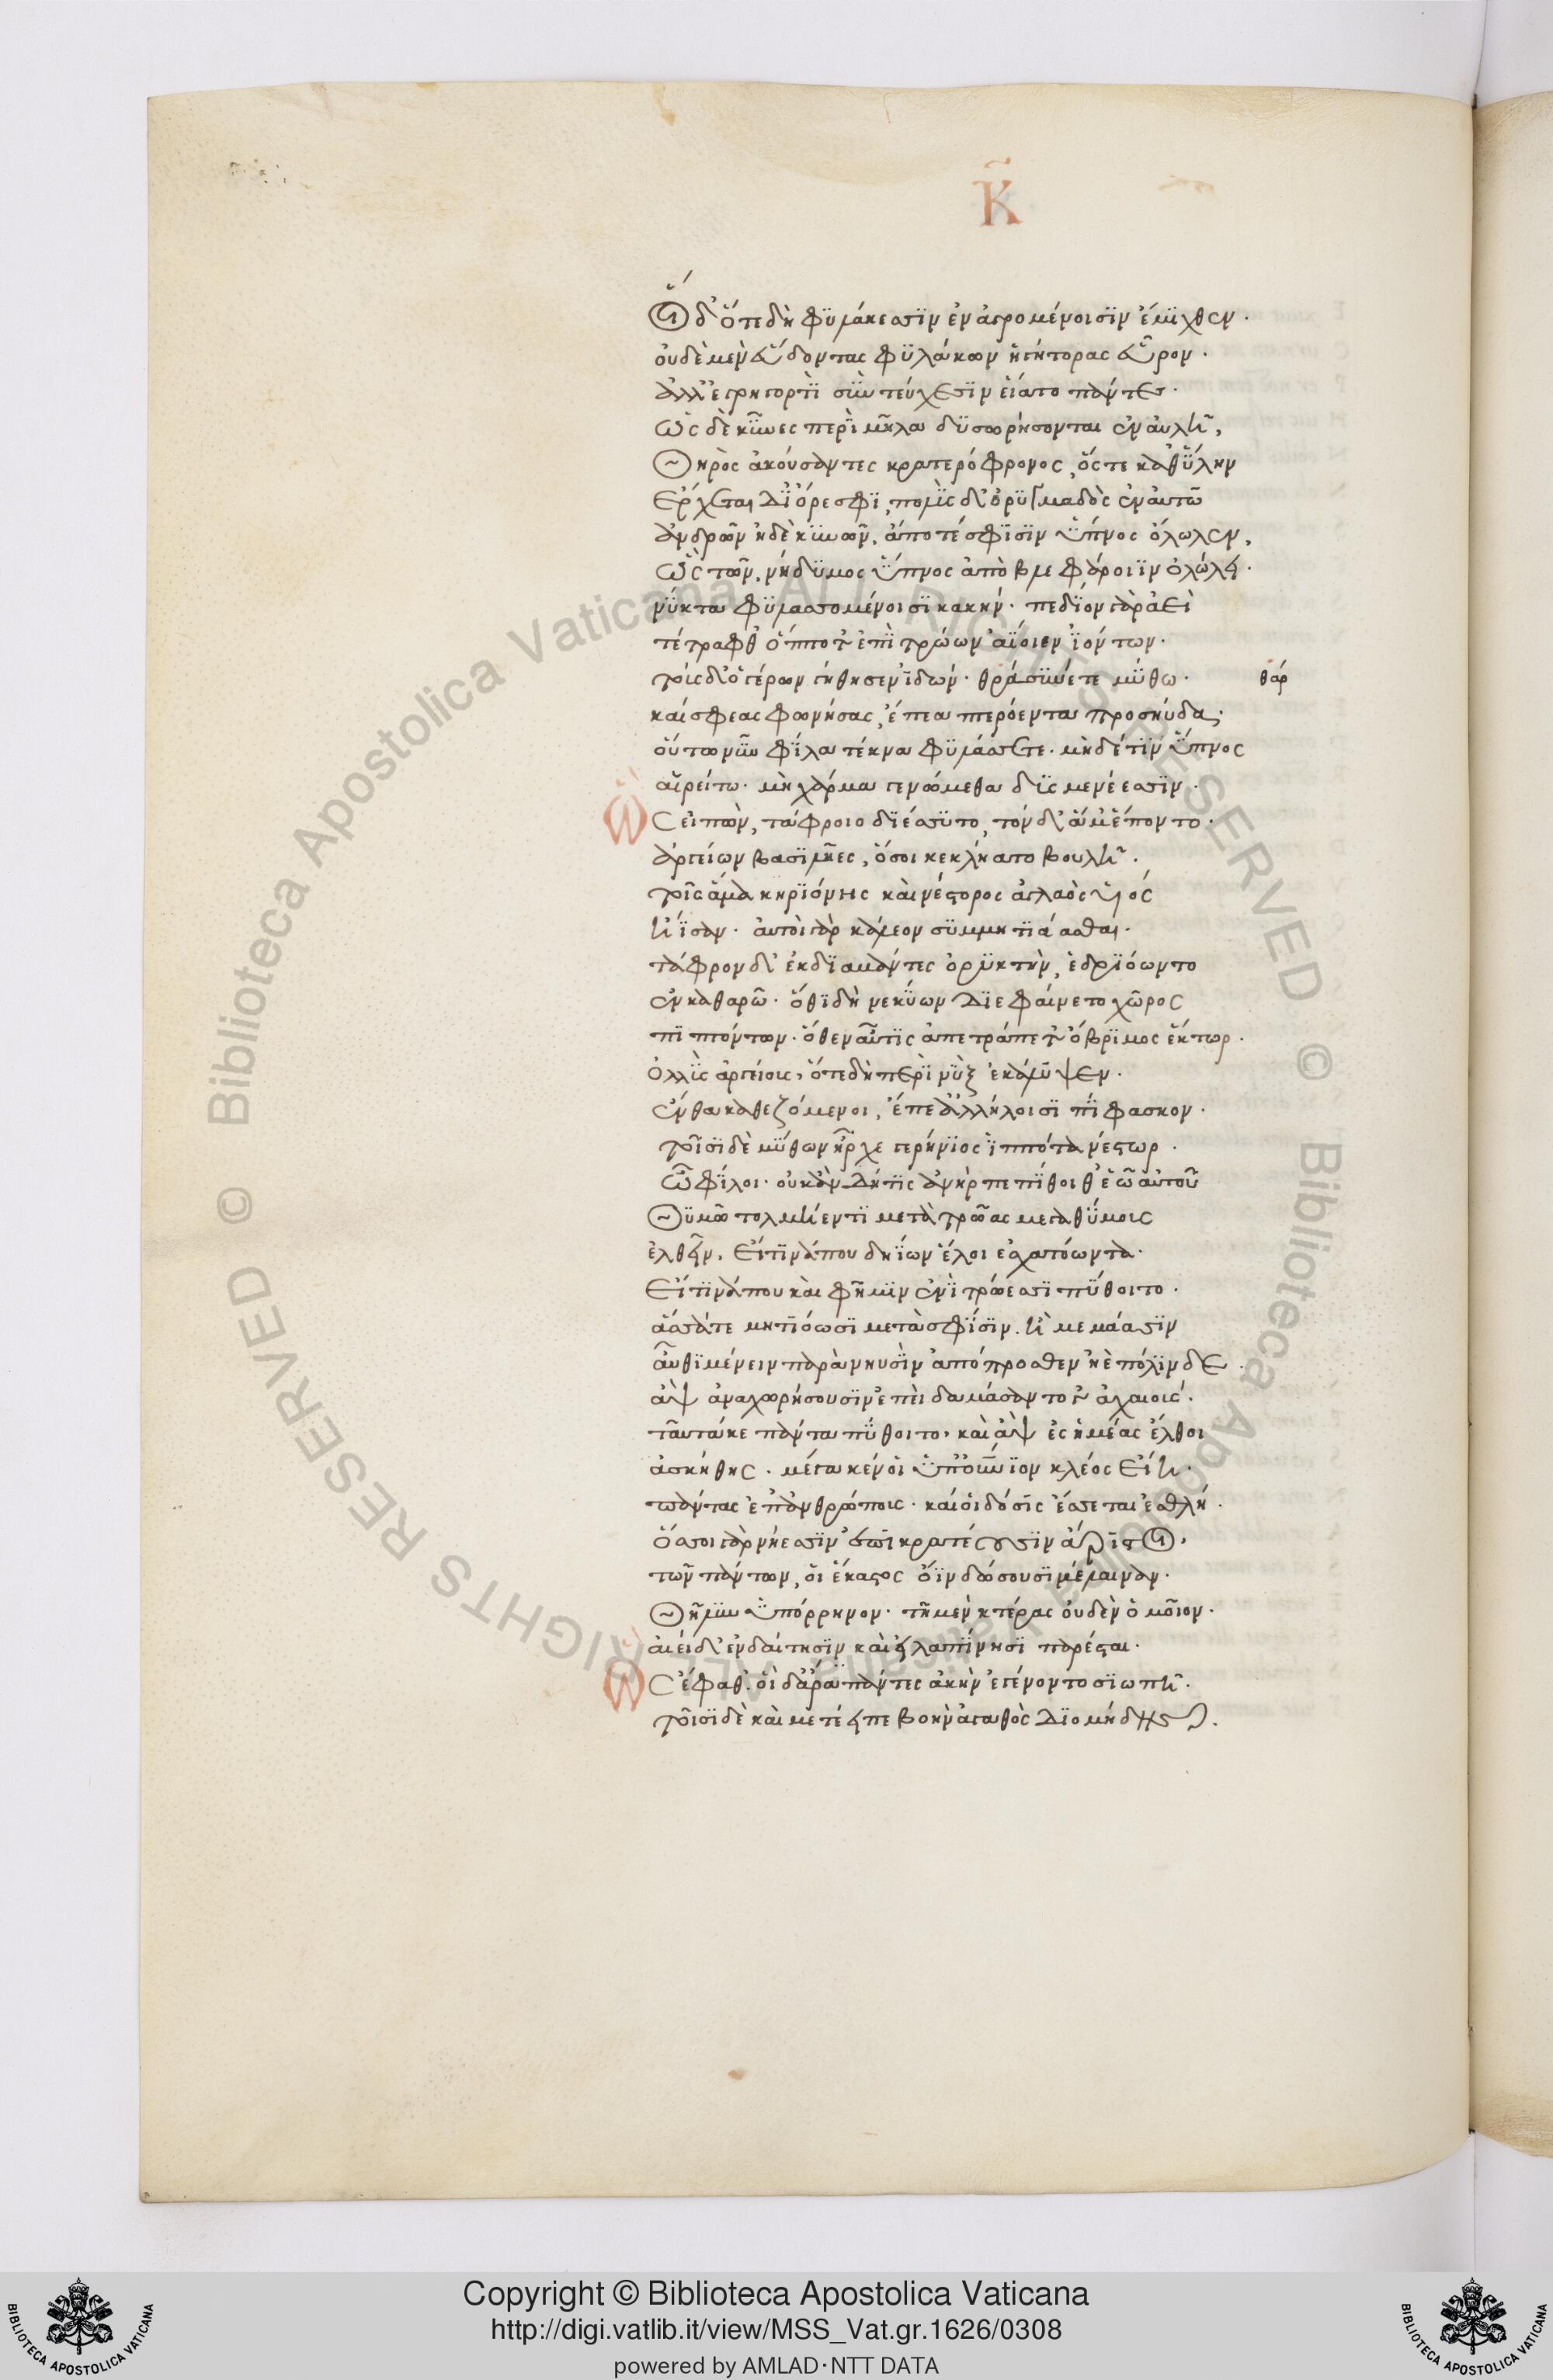 Κ̃
Οἱ δ' ὅτε δὴ φϋλάκεσσϊν ἐν ἀγρομένοισϊν ἔμϊχθεν·
οὐδὲ μὲν εὕδοντας φϋλάκων ἡγήτορας εὗρον·
ἀλλ' ἐγρηγορτῒ σὺν τεύχεσϊν εἵατο πάντες·
ὡς δὲ κῦνες περῒ μῆλα δϋσωρήσονται ἐν αὐλῆ,
Θηρὸς ἀκούσαντες κρατερόφρονος, ὅς τε καθ' ὕλην
ἔρχεται δι' ὄρεσφϊ, πολῢς δ' ὀρϋμαδὸς ἐν αὐτῶ
ἀνδρῶν ἠδὲ κϋνῶν, ἀπό τέ σφϊσϊν ὕπνος ὄλωλεν,
ὣς τῶν, νήδϋμος ὕπνος ἀπὸ βλεφάροιϊν ὀλώλει·
νύκτα φϋλασσομένοισϊ κακήν· πεδϊον γὰρ ἀεὶ
τέτραφθ' ὁππότ' ἐπῒ τρώων ἀϊοιεν ἰόντων·
τοὺς δ' ὁ γέρων γήθησεν ἰδών· θράσϋνέ τε μύθω·
θάρ
καί σφεας φωνήσας, ἔπεα πτερόεντα προσηύδα·
οὕτω νῦν φίλα τέκνα φϋλάσσετε· μὴ δέ τϊν' ὕπνος
αἱρείτω· μὴ χάρμα γενώμεθα δϋσμενέεσσϊν·
Ὣς εἰπὼν, τάφροιο δϊέσσϋτο, τὸν δ' ἅμ' ἕποντο·
ἀργείων βασϊλῆες, ὅσοι κεκλήατο βουλῆ·
τοῖς ἅμα κηρϊόνης καὶ νέστορος ἀγλαὸς υἱός
ἤϊσαν· αὐτοὶ γὰρ κάλεον σϋμμητϊάασθαι·
τάφρον δ' ἐκδϊαμάντες ὀρϋκτὴν, ἑδρϊόωντο
ἐν καθαρῶ· ὅθϊ δὴ νεκύων δϊεφαίνετο χῶρος
πϊπτόντων· ὅθεν αὖτϊς ἀπετράπετ' ὄβρϊμος ἕκτωρ·
ὀλλῢς ἀργείους, ὅτε δὴ περῒ νὺξ ἐκάλυψεν·
ἔνθα καθεζόμενοι, ἔπε' ἀλλήλοισϊ πίφασκον·
τοῖσϊ δὲ μύθων ἦρχε γερήνϊος ἱππότα νέστωρ·
ὦ φίλοι· οὐκ ἂν δή τϊς ἀνὴρ πεπίθοιθ' ἑῶ αὐτοῦ
Θϋμῶ τολμήεντϊ μετὰ τρῶας μεγαθύμους
ἐλθεῖν, εἴ τϊνά που δηΐων ἕλοι ἐσχατόωντα·
εἴ τϊνά που καὶ φῆμϊν ἐνῒ τρώεσσϊ πύθοιτο·
ἅσσά τε μητϊόωσϊ μετὰ σφίσϊν, ἢ μεμάασϊν
αὖθϊ μένειν παρὰ νηυσῒν ἀπόπροσθεν· ἠὲ πόλϊνδε·
ἂψ ἀναχωρήσουσϊν ἐπεὶ δαμάσαντό γ' ἀχαιούς·
ταῦτά κε πάντα πύθοιτο, καὶ ἂψ ἐς ἡμέας ἔλθοι
ἀσκηθής· μέγα κέν οἱ ὑπουράνϊον κλέος εἴη·
πάντας ἐπ' ἀνθρώπους· καί οἱ δόσϊς ἔσσεται ἐσθλή·
ὅσσοι γὰρ νήεσσϊν ἐπϊκρατέουσϊν ἄρϊστοι,
τῶν πάντων, οἱ ἕκαστος ὄϊν δώσουσϊ μέλαιναν·
Θῆλϋν ὑπόρρηνον· τῆ μὲν κτέρας οὐδὲν ὁμοῖον·
αἰεὶ δ' ἐν δαίτησϊν καὶ εἰλαπίνησϊ παρέσται·
Ὣς ἔφαθ'· οἱ δ' ἄρα πάντες ἀκὴν ἐγένοντο σϊωπῆ·
τοῖσϊ δὲ καὶ μετέειπε βοὴν ἀγαθὸς δϊομήδης·
Copyright © Biblioteca Apostolica Vaticana
http://digi.vatlib.it/view/MSS_Vat.gr.1626/0308
powered by AMLAD·NTT DATA
BIBLIOTECA APOSTOLICA VATICANA
BIBLIOTECA APOSTOLICA VATICANA
© Biblioteca Apostolica Vaticana ALL RIGHTS RESERVED © Biblioteca Apostolica Vaticana ALL RIGHTS RESERVED